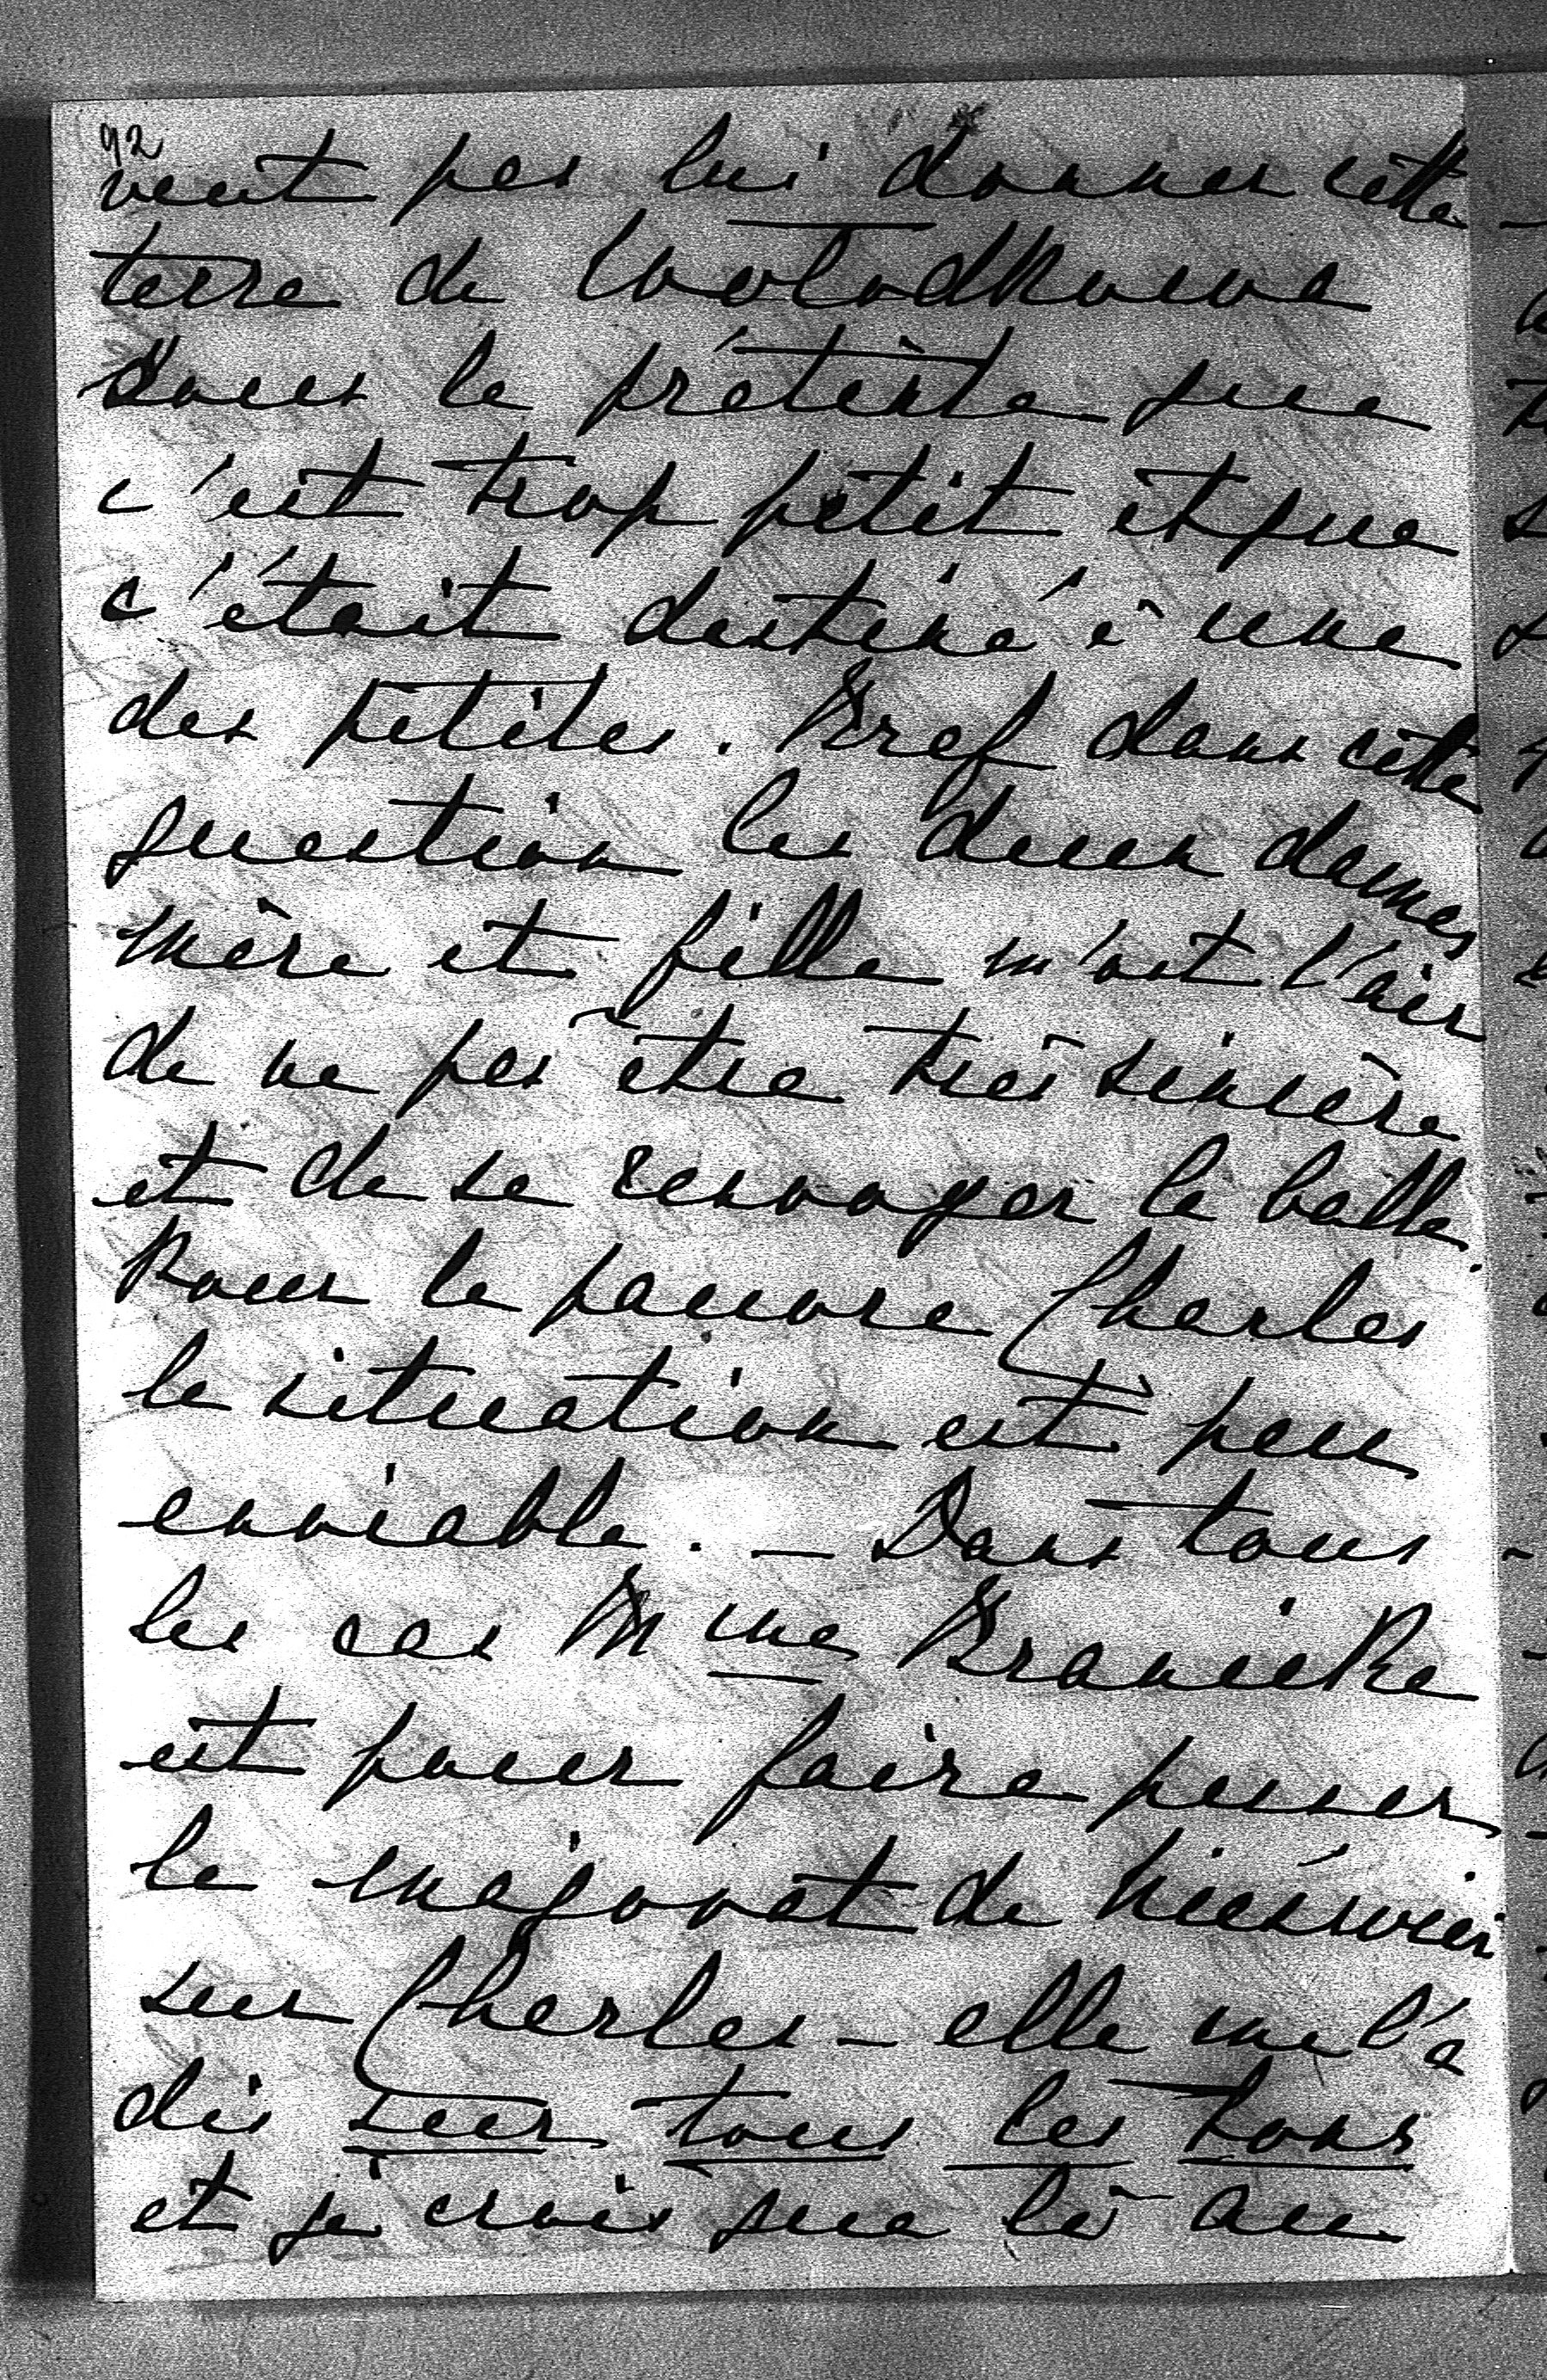 92
veut pas lui donner cette
terre de Wolodkowa
sous le prétexte que
c'est trop petit et que
c'était destiné à une
des petites. Bref dans cette
question les deux dames
mère et fille m'ont l'air
de ne pas être très sincère
et de se renvoyer la balle.
Pour le pauvre Charles
la situation est peu
enviable. — Dans tous
les cas Mme Branicka
est pour faire passer
le majorat de Nieśwież
sur Charles — elle me l'a
dis sur tous les tons
et je crois que là au